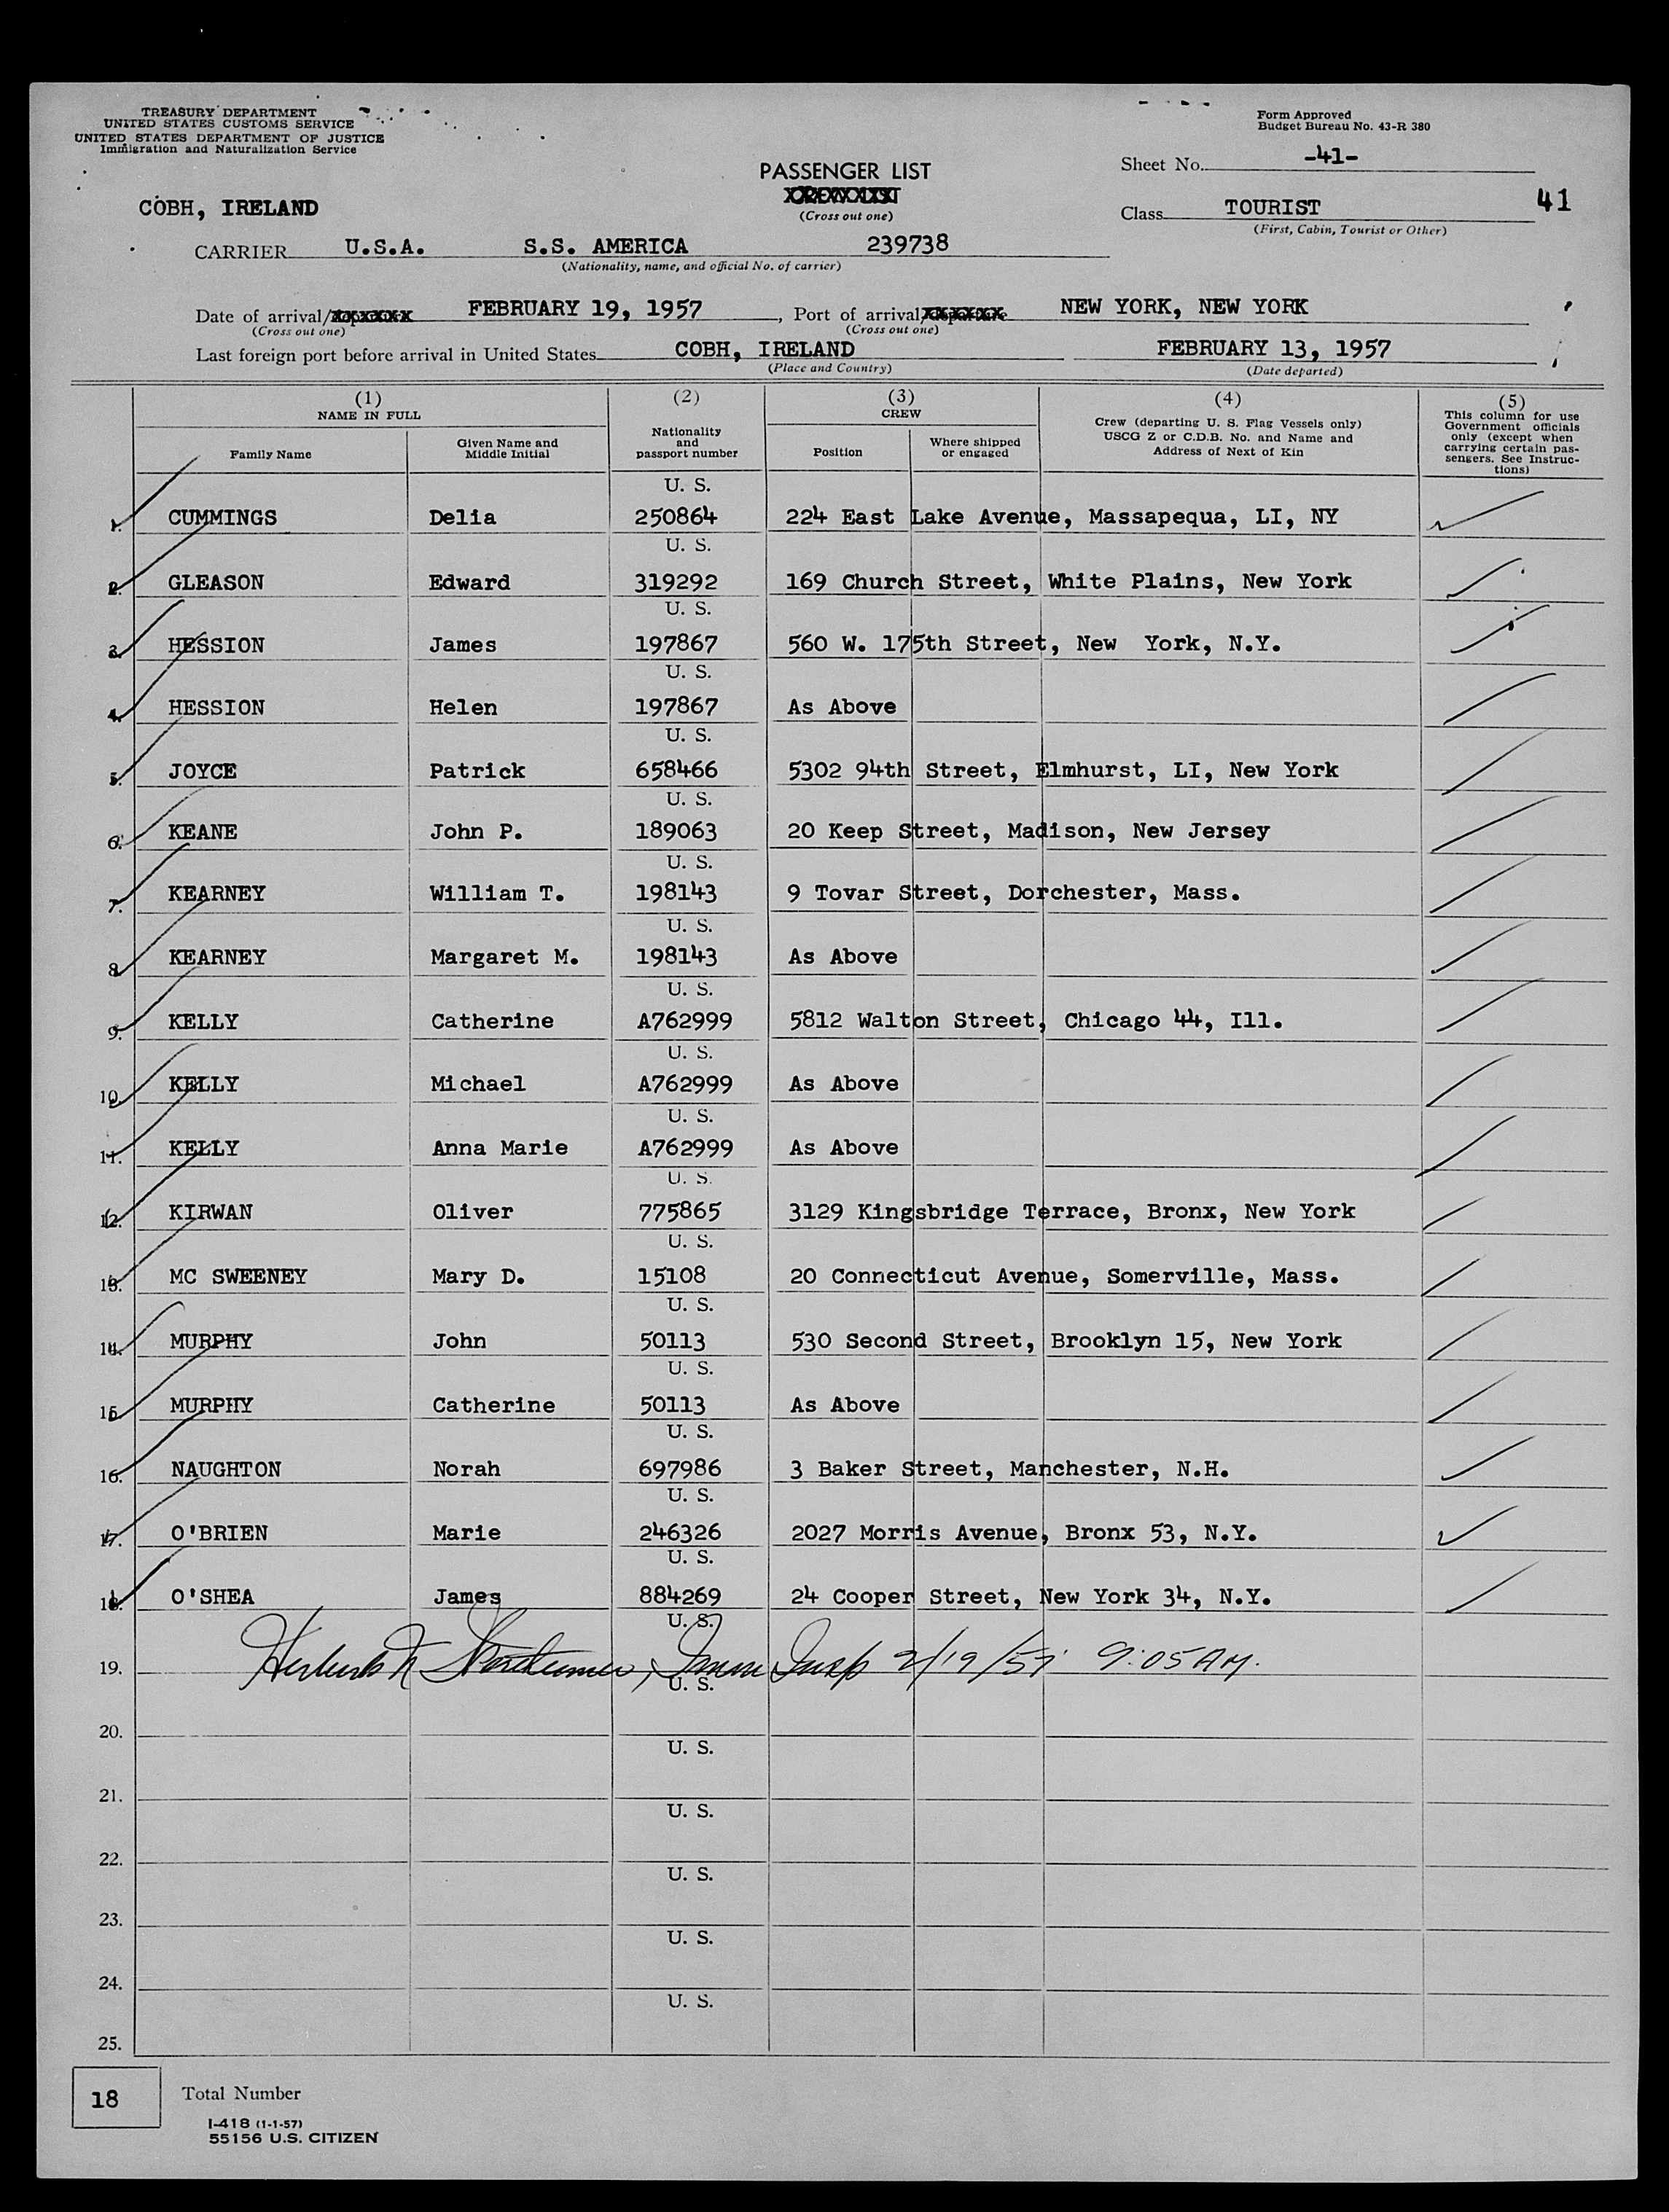 TREASURY DEPARTMENT
UNITED STATES CUSTOMS SERVICE
UNITED STATES DEPARTMENT OF JUSTICE
Immigration and Naturalization Service
Form Approved
Budget Bureau No. 43-R 380
PASSENGER LIST
Sheet No. -41-
(Cross out one)
COBH, IRELAND
Class TOURIST 41
(First, Cabin, Tourist or Other)
CARRIER U.S.A. S.S. AMERICA 239738
(Nationality, name, and official No. of carrier)
Date of arrival/ FEBRUARY 19, 1957, Port of arrival/ NEW YORK, NEW YORK
(Cross out one) (Cross out one)
Last foreign port before arrival in United States COBH, IRELAND FEBRUARY 13, 1957
(Place and Country) (Date departed)
(1) NAME IN FULL
Family Name
Given Name and Middle Initial
(2) Nationality and passport number
(3) CREW
Position
Where shipped or engaged
(4) Crew (departing U. S. Flag Vessels only) USCG Z or C.D.B. No. and Name and Address of Next of Kin
(5) This column for use Government officials only (except when carrying certain passengers. See Instructions)
U. S.
1. CUMMINGS Delia 250864 224 East Lake Avenue, Massapequa, LI, NY
U. S.
2. GLEASON Edward 319292 169 Church Street, White Plains, New York
U. S.
3. HESSION James 197867 560 W. 175th Street, New York, N.Y.
U. S.
4. HESSION Helen 197867 As Above
U. S.
5. JOYCE Patrick 658466 5302 94th Street, Elmhurst, LI, New York
U. S.
6. KEANE John P. 189063 20 Keep Street, Madison, New Jersey
U. S.
7. KEARNEY William T. 198143 9 Tovar Street, Dorchester, Mass.
U. S.
8. KEARNEY Margaret M. 198143 As Above
U. S.
9. KELLY Catherine A762999 5812 Walton Street, Chicago 44, Ill.
U. S.
10. KELLY Michael A762999 As Above
U. S.
11. KELLY Anna Marie A762999 As Above
U. S.
12. KIRWAN Oliver 775865 3129 Kingsbridge Terrace, Bronx, New York
U. S.
13. MC SWEENEY Mary D. 15108 20 Connecticut Avenue, Somerville, Mass.
U. S.
14. MURPHY John 50113 530 Second Street, Brooklyn 15, New York
U. S.
15. MURPHY Catherine 50113 As Above
U. S.
16. NAUGHTON Norah 697986 3 Baker Street, Manchester, N.H.
U. S.
17. O'BRIEN Marie 246326 2027 Morris Avenue, Bronx 53, N.Y.
U. S.
18. O'SHEA James 884269 24 Cooper Street, New York 34, N.Y.
U. S.
19. Insp 2/19/57 9:05 AM.
U. S.
20.
U. S.
21.
U. S.
22.
U. S.
23.
U. S.
24.
U. S.
25.
18 Total Number
I-418 (1-1-57)
55156 U.S. CITIZEN